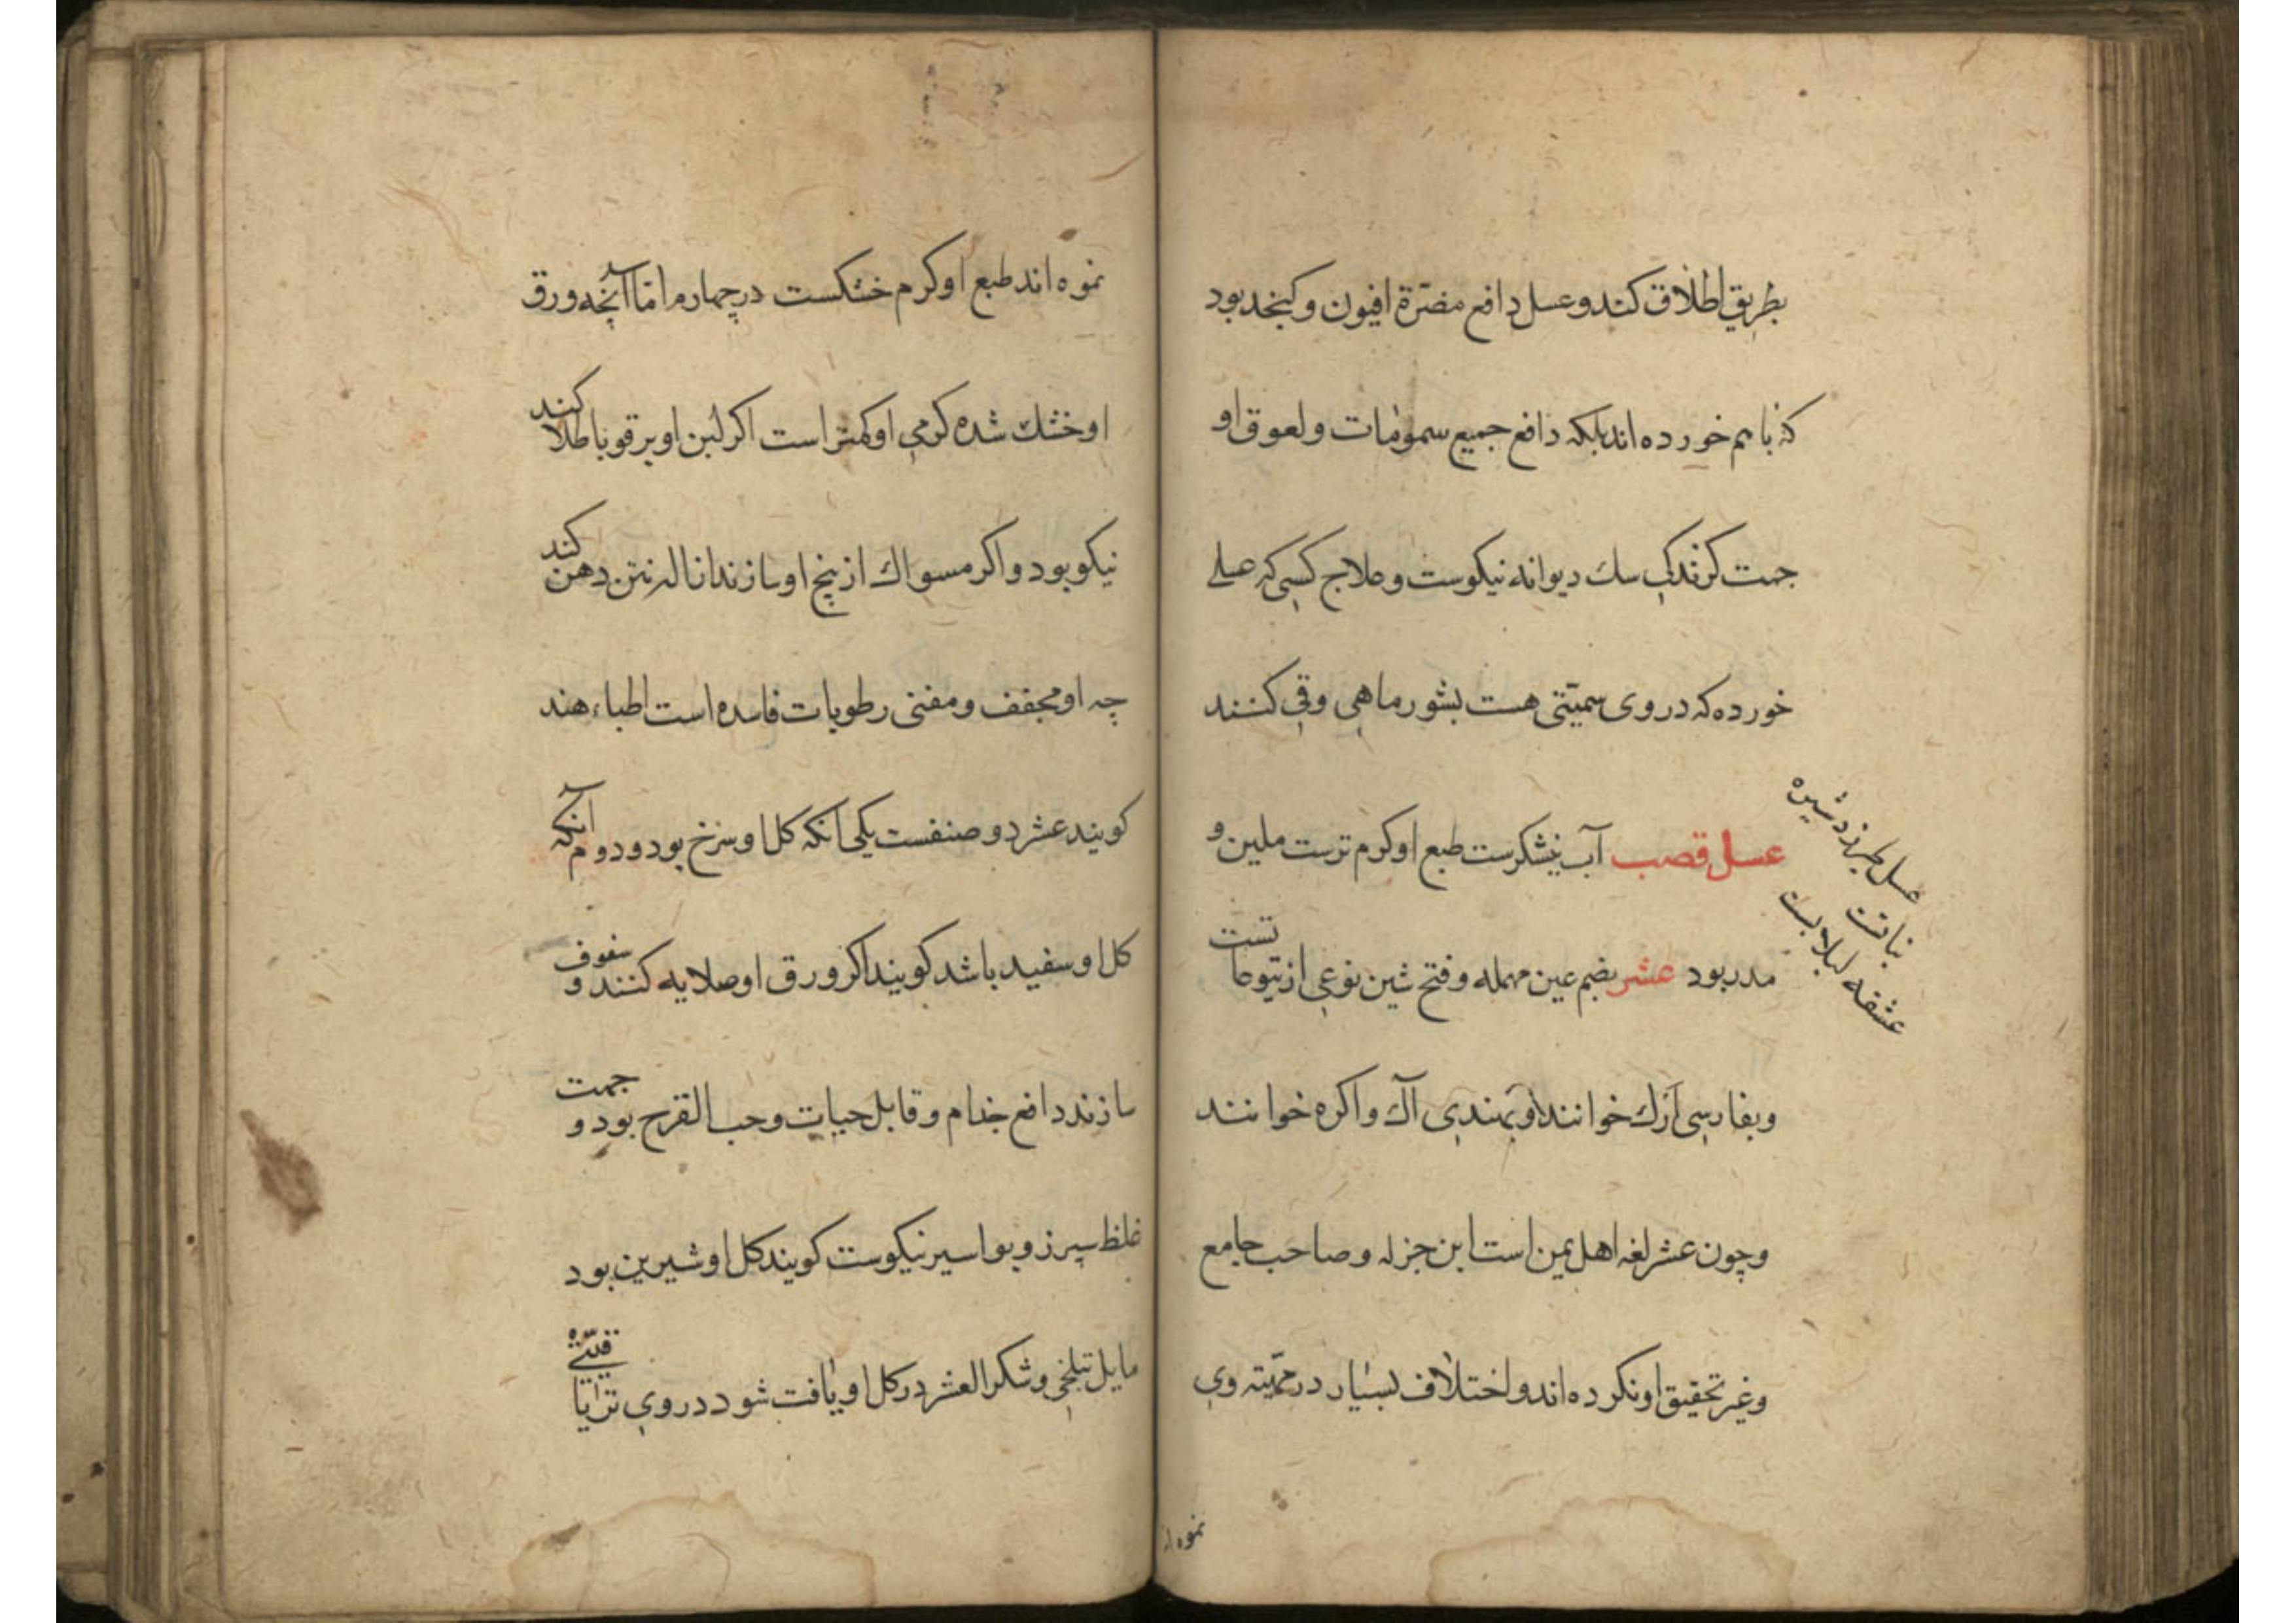 بطریق اطلاق کند و عسل دافع مضرّة افیون و کنجد بود
که با سم خورده اند بلکه دافع جمیع سمومات و لعوق او
جهت کزندکی سك دیوانه نیکوست و علاج کسی که عسلی
خورده که در وی سمیّتی هست بشور ماهی و قی کنند
عسل قصب آب نیشکرست طبع او کرم ترست ملین و
مدر بود عشر بضم عین مهمله و فتح شین نوعی از یتوعاتست
و بفارسی ازك خوانند و بهندی آك و اکره خوانند
و چون عشر لغه اهل یمن است ابن جزله و صاحب جامع
و غیر تحقیق او نکرده اند و اختلاف بسیار در وی
عسل طبرزد شیره
نباتت
عشقه لبلابست
نموه ا
نموه اند طبع او کرم خشکست در چهارم امّا آنچه ورق
او خشك شده کرمی او کمتر است اکر لبن او بر قوبا طلا کند
نیکو بود و اکر مسواك از بیخ او سازند ازاله نتن دهن کند
چه او مجفف و مفنی رطوبات فاسده است اطباء هند
کویند عشر دو صنفست یکی آنکه کل او سرخ بود و دوم آنکه
کل او سفید باشد کویند اکر ورق او صلایه کنند و سفوف
سازند دافع جذام و قاتل حیات و حب القرح بود و جهت
غلظ سپرز و بواسیر نیکوست کویند کل او شیرین بود
مایل بتلخی و شکر العشر در کل او یافت شود در وی تریاقیّتی